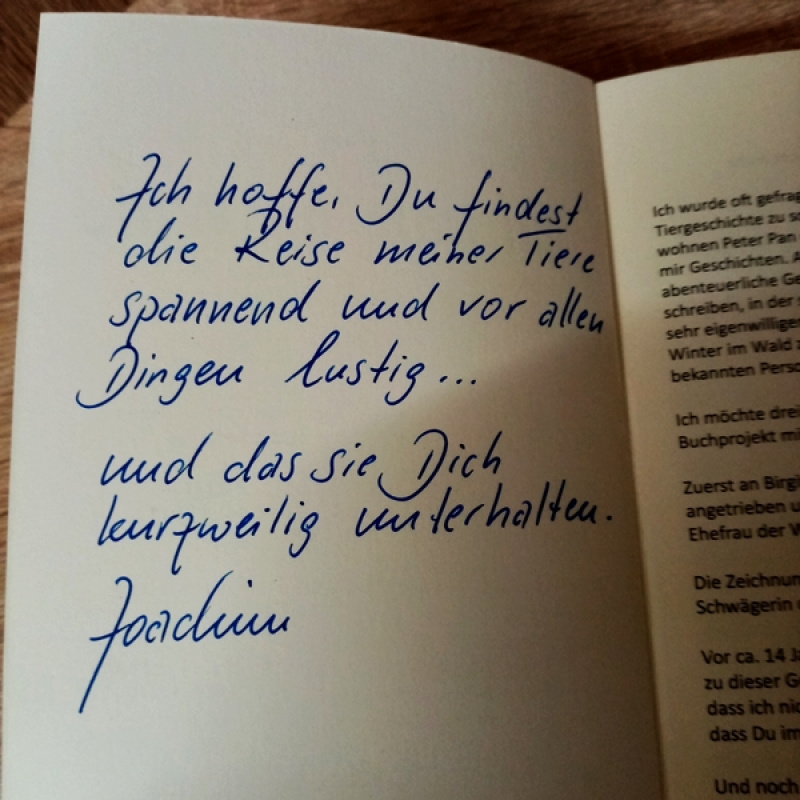 Ich hoffe, Du findest
die Reise meiner Tiere
spannend und vor allen
Dingen lustig...
und das sie Dich
kurzweilig unterhalten.
Joachim
Ich wurde oft gefrag
Tiergeschichte zu
wohnen Peter Pan
mir Geschichten. A
abenteuerliche Ge
schreiben, in der
sehr eigenwillige
Winter im Wald
bekannten Perso
Ich möchte drei
Buchprojekt mi
Zuerst an Birgi
angetrieben u
Ehefrau der V
Die Zeichnun
Schwägerin
Vor ca. 14 Ja
zu dieser G
dass ich nic
dass Du im
Und noch